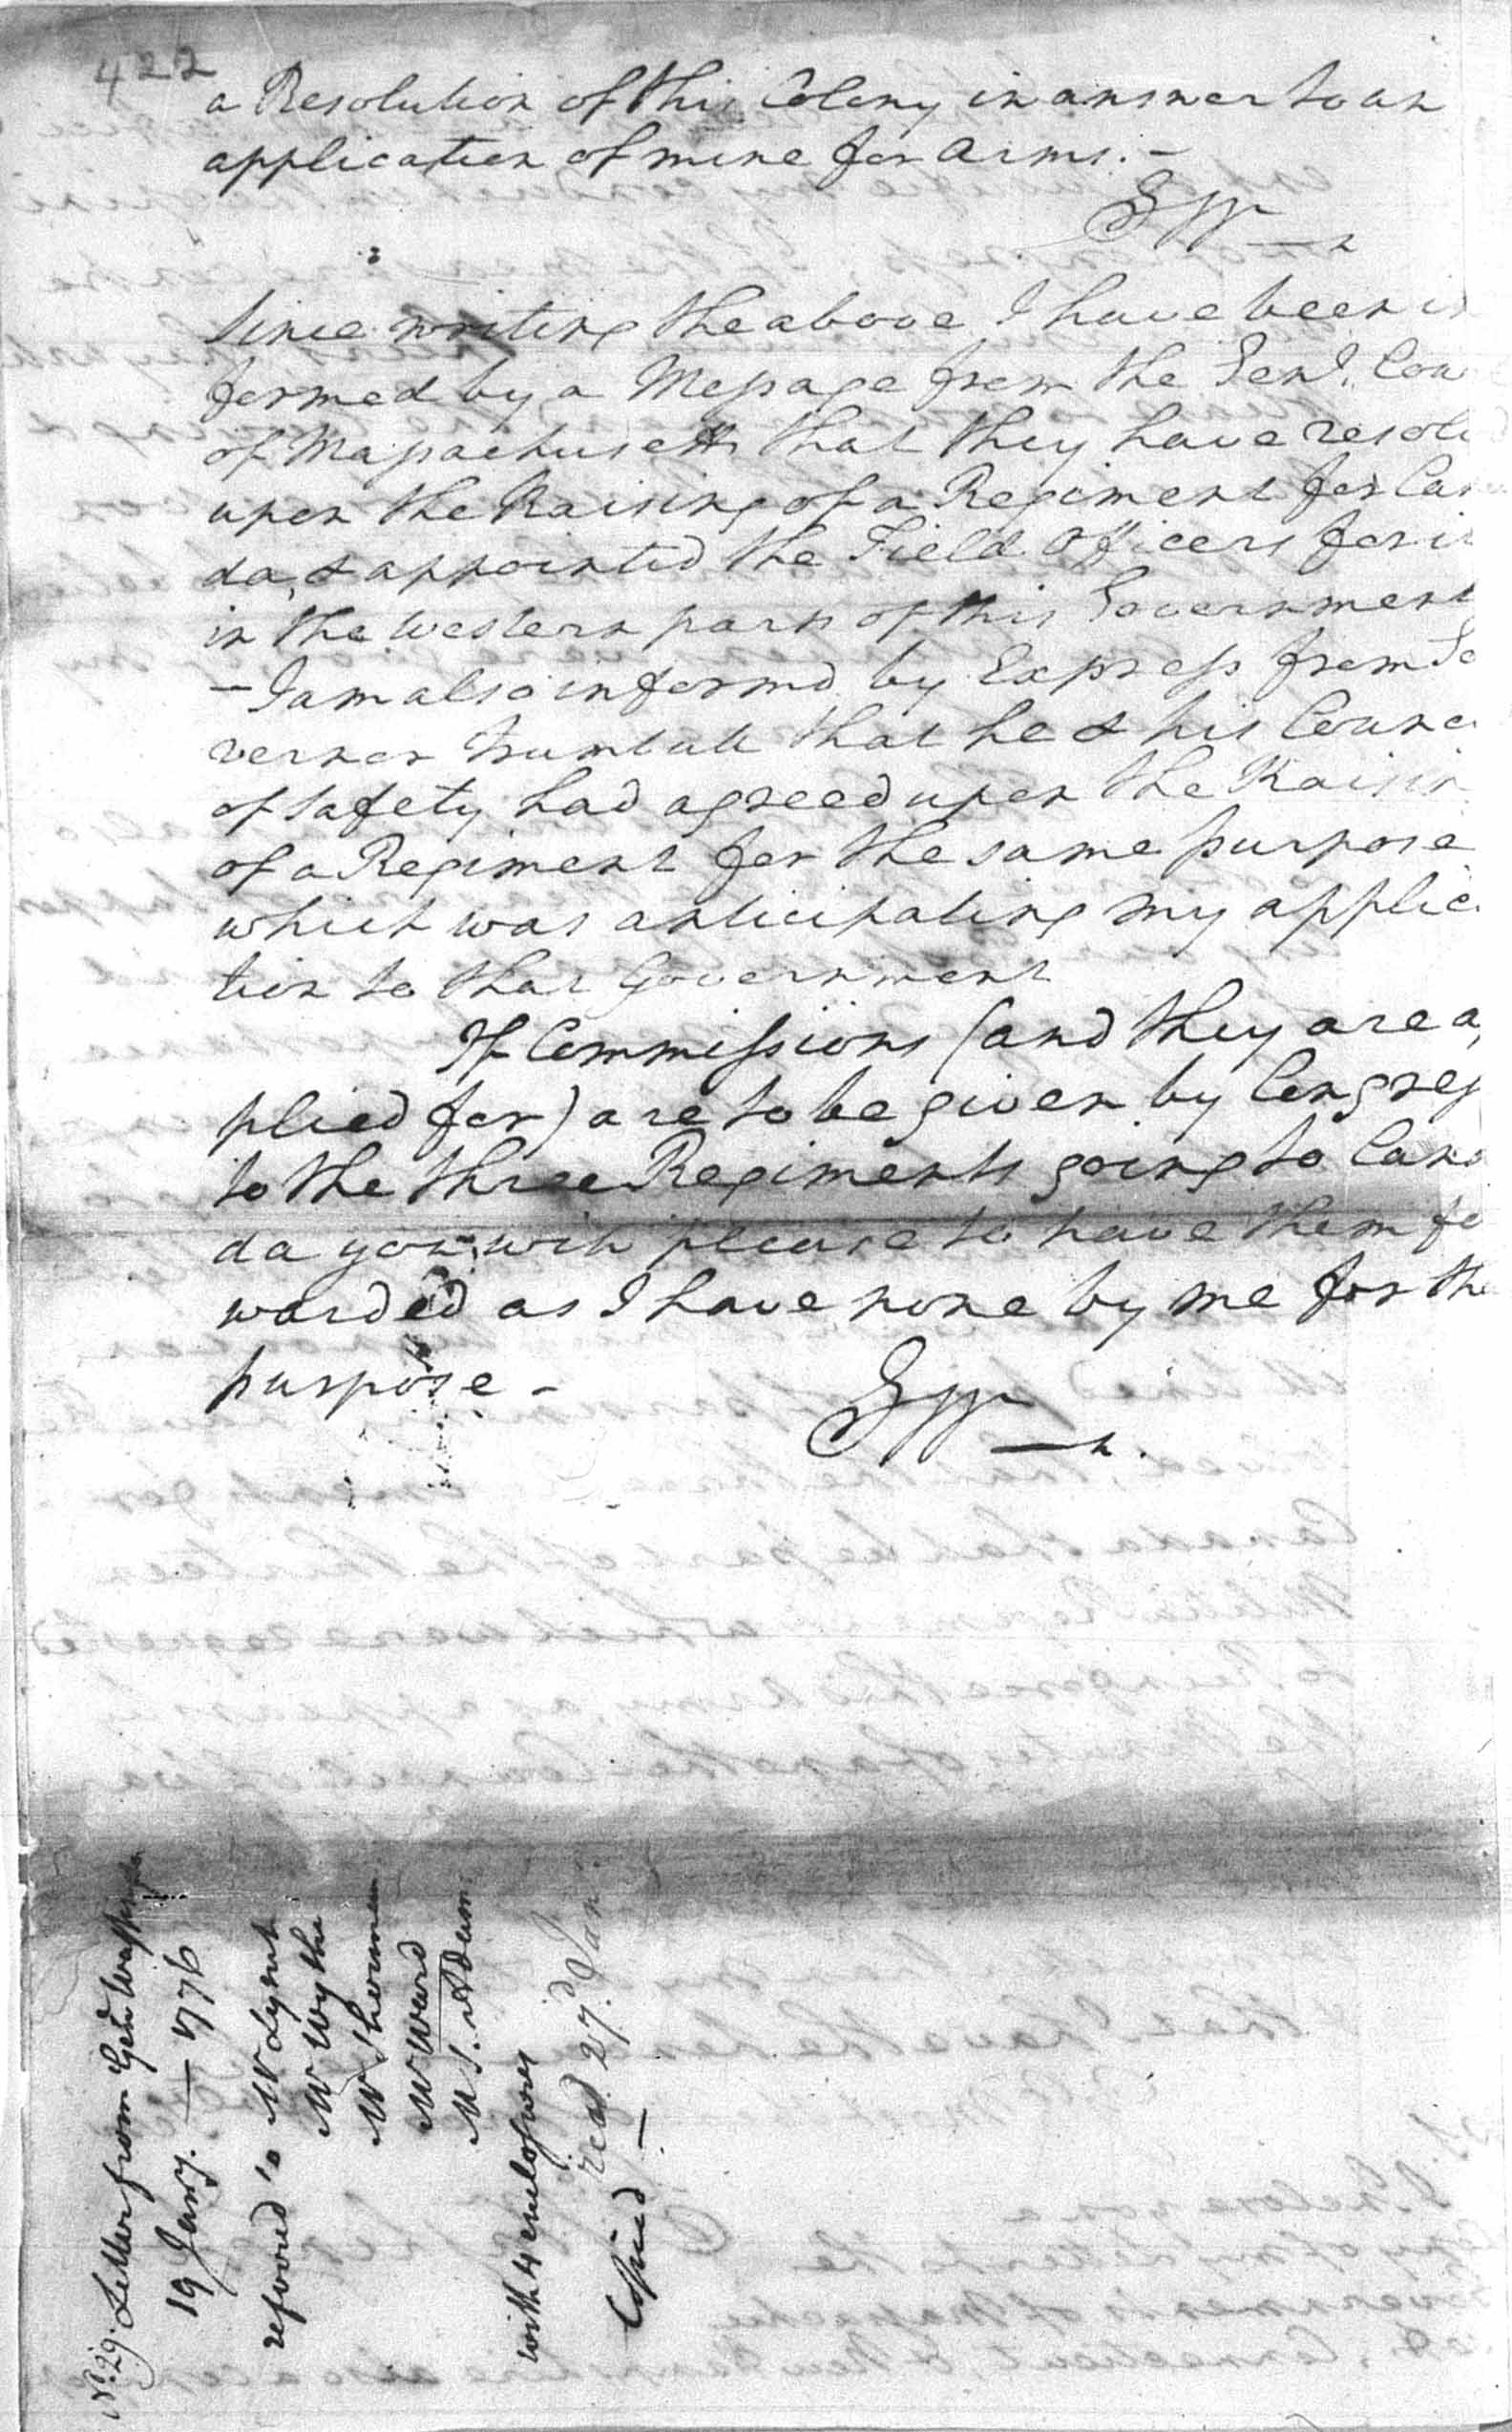 422
a Resolution of this Colony in answer to an
application of mine for Arms. –
G W—n
Since writing the above I have been in
formed by a Message from the Genl. Cou
of Massachusetts that they have resolv
upon the Raising of a Regiment for Can
da, & appointed the Field Officers for it
in the Western parts of this Government
– I am also informd by Express from Go
vernor Trumbull that he & his Counci
of Safety had agreed upon the Raisin
of a Regiment for the same purpose
which was anticipating my applica
tion to that Government
If Commissions (and they are ap
plied for) are to be given by Congress
to the three Regiments going to Cana
da you will please to have them for
warded as I have none by me for the
purpose –
G W—n.
No. 29. Letter from Genl Washington
19 Jany. — 1776
referred to Mr Lynch
Mr Wythe
Mr Sherman
Mr Ward
Mr S. Adams
with 4 enclosures
read 27th Jan
Copied —